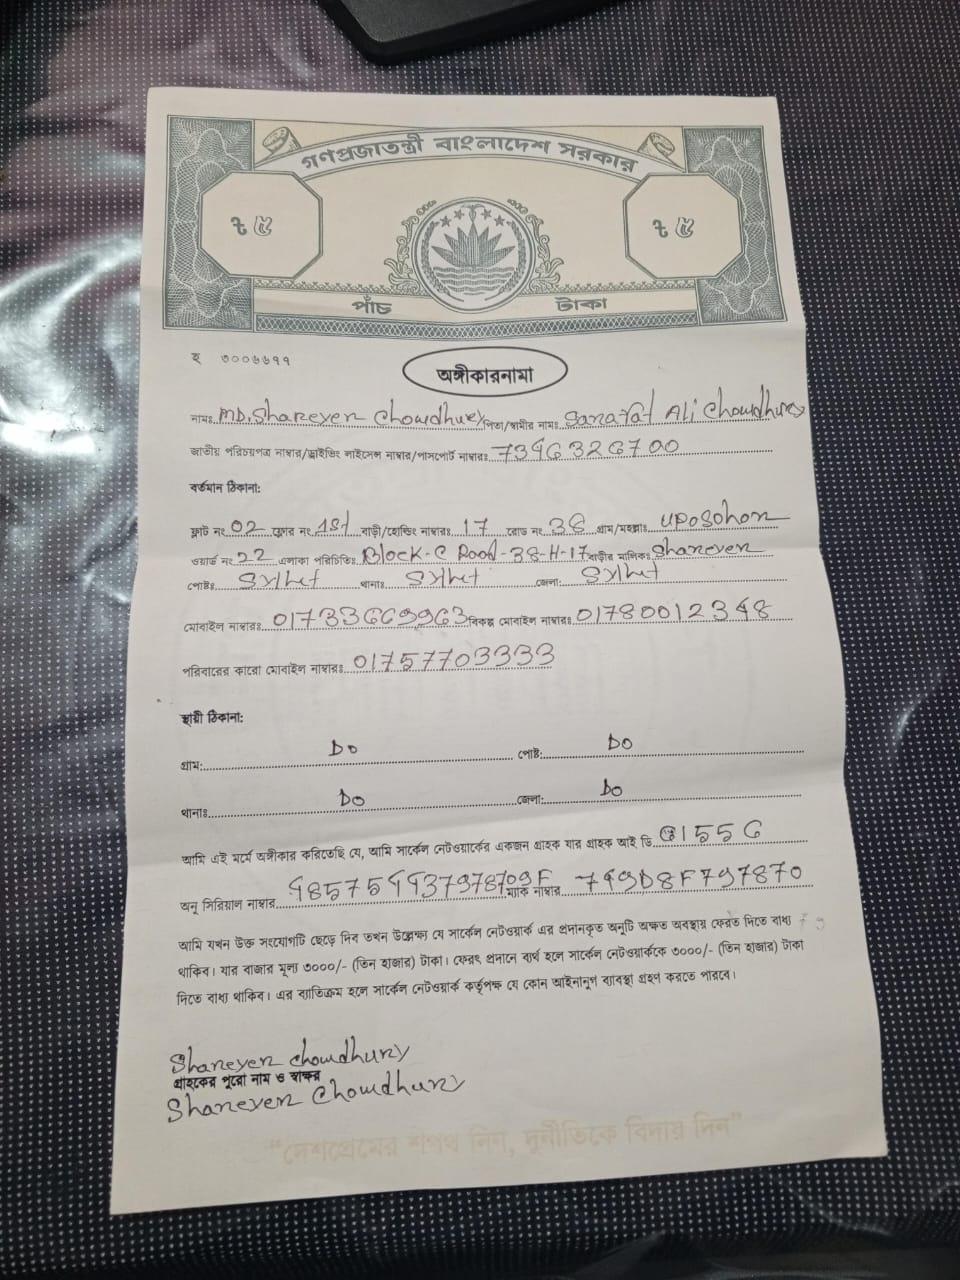 গণপ্রজাতন্ত্রী বাংলাদেশ সরকার
৳ ৫ ৳ ৫
পাঁচ টাকা
অঙ্গীকারনামা
নামঃ MD. Shareyer Chowdhury পিতা/স্বামীর নামঃ Ali Chowdhury
জাতীয় পরিচয়পত্র নাম্বার/ড্রাইভিং লাইসেন্স নাম্বার/পাসপোর্ট নাম্বারঃ
বর্তমান ঠিকানা:
ফ্লাট নং 02 ফ্লোর নং 1st বাড়ী/হোল্ডিং নাম্বারঃ 17 রোড নং 38 গ্রাম/মহল্লাঃ Uposohor
ওয়ার্ড নং 22 এলাকা পরিচিতিঃ Block-C Road-38-H-17 বাড়ীর মালিকঃ Shareyer
পোষ্টঃ Sylhet থানাঃ Sylhet জেলা: Sylhet
মোবাইল নাম্বারঃ বিকল্প মোবাইল নাম্বারঃ 01780012348
পরিবারের কারো মোবাইল নাম্বারঃ 01757703333
স্থায়ী ঠিকানা:
গ্রাম: Do পোষ্ট: Do
থানাঃ Do জেলা: Do
আমি এই মর্মে অঙ্গীকার করিতেছি যে, আমি সার্কেল নেটওয়ার্কের একজন গ্রাহক যার গ্রাহক আই ডি
অনু সিরিয়াল নাম্বার ম্যাক নাম্বার
আমি যখন উক্ত সংযোগটি ছেড়ে দিব তখন উল্লেক্ষ্য যে সার্কেল নেটওয়ার্ক এর প্রদানকৃত অনুটি অক্ষত অবস্থায় ফেরত দিতে বাধ্য
থাকিব। যার বাজার মূল্য ৩০০০/- (তিন হাজার) টাকা। ফেরৎ প্রদানে ব্যর্থ হলে সার্কেল নেটওয়ার্ককে ৩০০০/- (তিন হাজার) টাকা
দিতে বাধ্য থাকিব। এর ব্যতিক্রম হলে সার্কেল নেটওয়ার্ক কর্তৃপক্ষ যে কোন আইনানুগ ব্যাবস্থা গ্রহণ করতে পারবে।
Shareyer Chowdhury
গ্রাহকের পুরো নাম ও স্বাক্ষর
Shareyer Chowdhury
“দেশপ্রেমের শপথ নিন, দুর্নীতিকে বিদায় দিন”